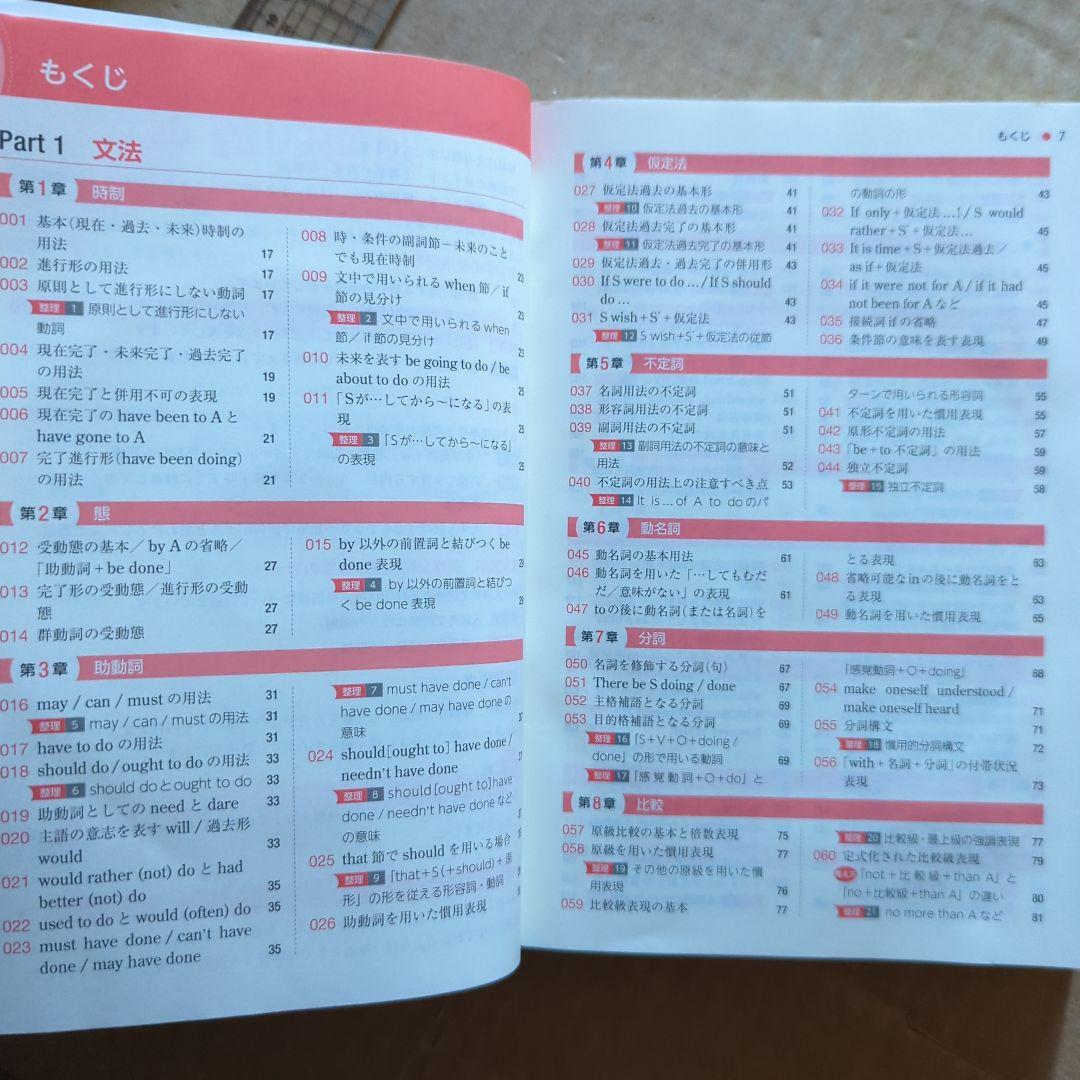 もくじ
Part 1 文法
第1章 時制
001 基本(現在・過去・未来)時制の
用法 17
002 進行形の用法 17
003 原則として進行形にしない動詞 17
整理 1 原則として進行形にしない
動詞 17
004 現在完了・未来完了・過去完了
の用法 19
005 現在完了と併用不可の表現 19
006 現在完了の have been to A と
have gone to A 21
007 完了進行形(have been doing)
の用法 21
008 時・条件の副詞節−未来のこと
でも現在時制 23
009 文中で用いられる when 節/if
節の見分け 23
整理 2 文中で用いられる when
節/if 節の見分け 23
010 未来を表す be going to do / be
about to do の用法 25
011 「Sが…してから〜になる」の表
現 25
整理 3 「Sが…してから〜になる」
の表現 25
第2章 態
012 受動態の基本/by A の省略/
「助動詞+be done」 27
013 完了形の受動態/進行形の受動
態 27
014 群動詞の受動態 27
015 by 以外の前置詞と結びつく be
done 表現 29
整理 4 by 以外の前置詞と結びつ
く be done 表現 29
第3章 助動詞
016 may / can / must の用法 31
整理 5 may / can / must の用法 31
017 have to do の用法 31
018 should do / ought to do の用法 33
整理 6 should do と ought to do 33
019 助動詞としての need と dare 33
020 主語の意志を表す will / 過去形
would 33
021 would rather (not) do と had
better (not) do 35
022 used to do と would (often) do 35
023 must have done / can't have
done / may have done 35
整理 7 must have done / can't
have done / may have done の
意味
024 should[ought to] have done /
needn't have done
整理 8 should [ought to] have
done / needn't have done など
の意味
025 that 節で should を用いる場合
整理 9 「that+S(+should)+原
形」の形を従える形容詞・動詞
026 助動詞を用いた慣用表現
もくじ ● 7
第4章 仮定法
027 仮定法過去の基本形 41
整理 10 仮定法過去の基本形 41
028 仮定法過去完了の基本形 41
整理 11 仮定法過去完了の基本形 41
029 仮定法過去・過去完了の併用形 43
030 If S were to do …/ If S should
do … 43
031 S wish+S'+仮定法 43
整理 12 S wish+S'+仮定法の従節
の動詞の形 43
032 If only+仮定法…! / S would
rather+S'+仮定法… 45
033 It is time+S+仮定法過去/
as if+仮定法 45
034 if it were not for A / if it had
not been for A など 45
035 接続詞 if の省略 47
036 条件節の意味を表す表現 49
第5章 不定詞
037 名詞用法の不定詞 51
038 形容詞用法の不定詞 51
039 副詞用法の不定詞 51
整理 13 副詞用法の不定詞の意味と
用法 52
040 不定詞の用法上の注意すべき点 53
整理 14 It is … of A to do のパ
ターンで用いられる形容詞 55
041 不定詞を用いた慣用表現 55
042 原形不定詞の用法 57
043 「be+to 不定詞」の用法 59
044 独立不定詞 59
整理 15 独立不定詞 58
第6章 動名詞
045 動名詞の基本用法 61
046 動名詞を用いた「…してもむだ
だ/意味がない」の表現 61
047 to の後に動名詞(または名詞)を
とる表現 63
048 省略可能な in の後に動名詞をと
る表現 63
049 動名詞を用いた慣用表現 65
第7章 分詞
050 名詞を修飾する分詞(句) 67
051 There be S doing / done 67
052 主格補語となる分詞 69
053 目的格補語となる分詞 69
整理 16 「S+V+O+doing /
done」の形で用いる動詞 69
整理 17 「感覚動詞+O+do」と
「感覚動詞+O+doing」 68
054 make oneself understood /
make oneself heard 71
055 分詞構文 71
整理 18 慣用的分詞構文 72
056 「with+名詞+分詞」の付帯状況
表現 73
第8章 比較
057 原級比較の基本と倍数表現 75
058 原級を用いた慣用表現 77
整理 19 その他の原級を用いた慣
用表現 76
059 比較級表現の基本 77
整理 20 比較級・最上級の強調表現 77
060 定式化された比較級表現 79
「not+比較級+than A」と
「no+比較級+than A」の違い 80
整理 21 no more than A など 81